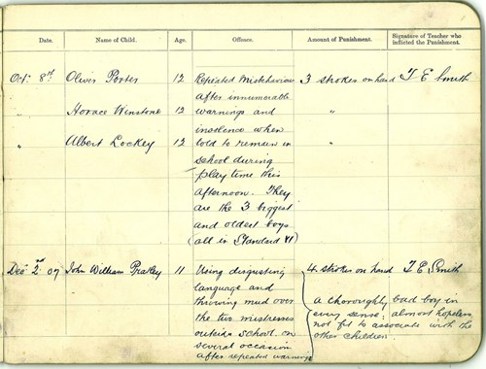 Date. Name of Child. Age. Offence. Amount of Punishment. Signature of Teacher who inflicted the Punishment.
Oct. 8th Oliver Porter 12 Repeated Misbehaviour 3 strokes on hand T E Smith
after innumerable
Horace Winstone 12 warnings and "
insolence when
" Albert Lockey 12 told to remain in "
school during
play time this
afternoon. They
are the 3 biggest
and oldest boys
(all in Standard VI)
Dec 2nd 07 John William Pratley 11 Using disgusting 4 strokes on hand T. E. Smith
language and
throwing mud over a thoroughly bad boy in
the two mistresses every sense; almost hopeless
outside school on not fit to associate with the
several occasion other children.
after repeated warnings